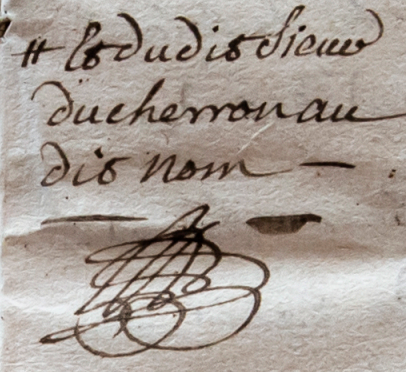 # Et dudit Sieur
ducherron au
dit nom —